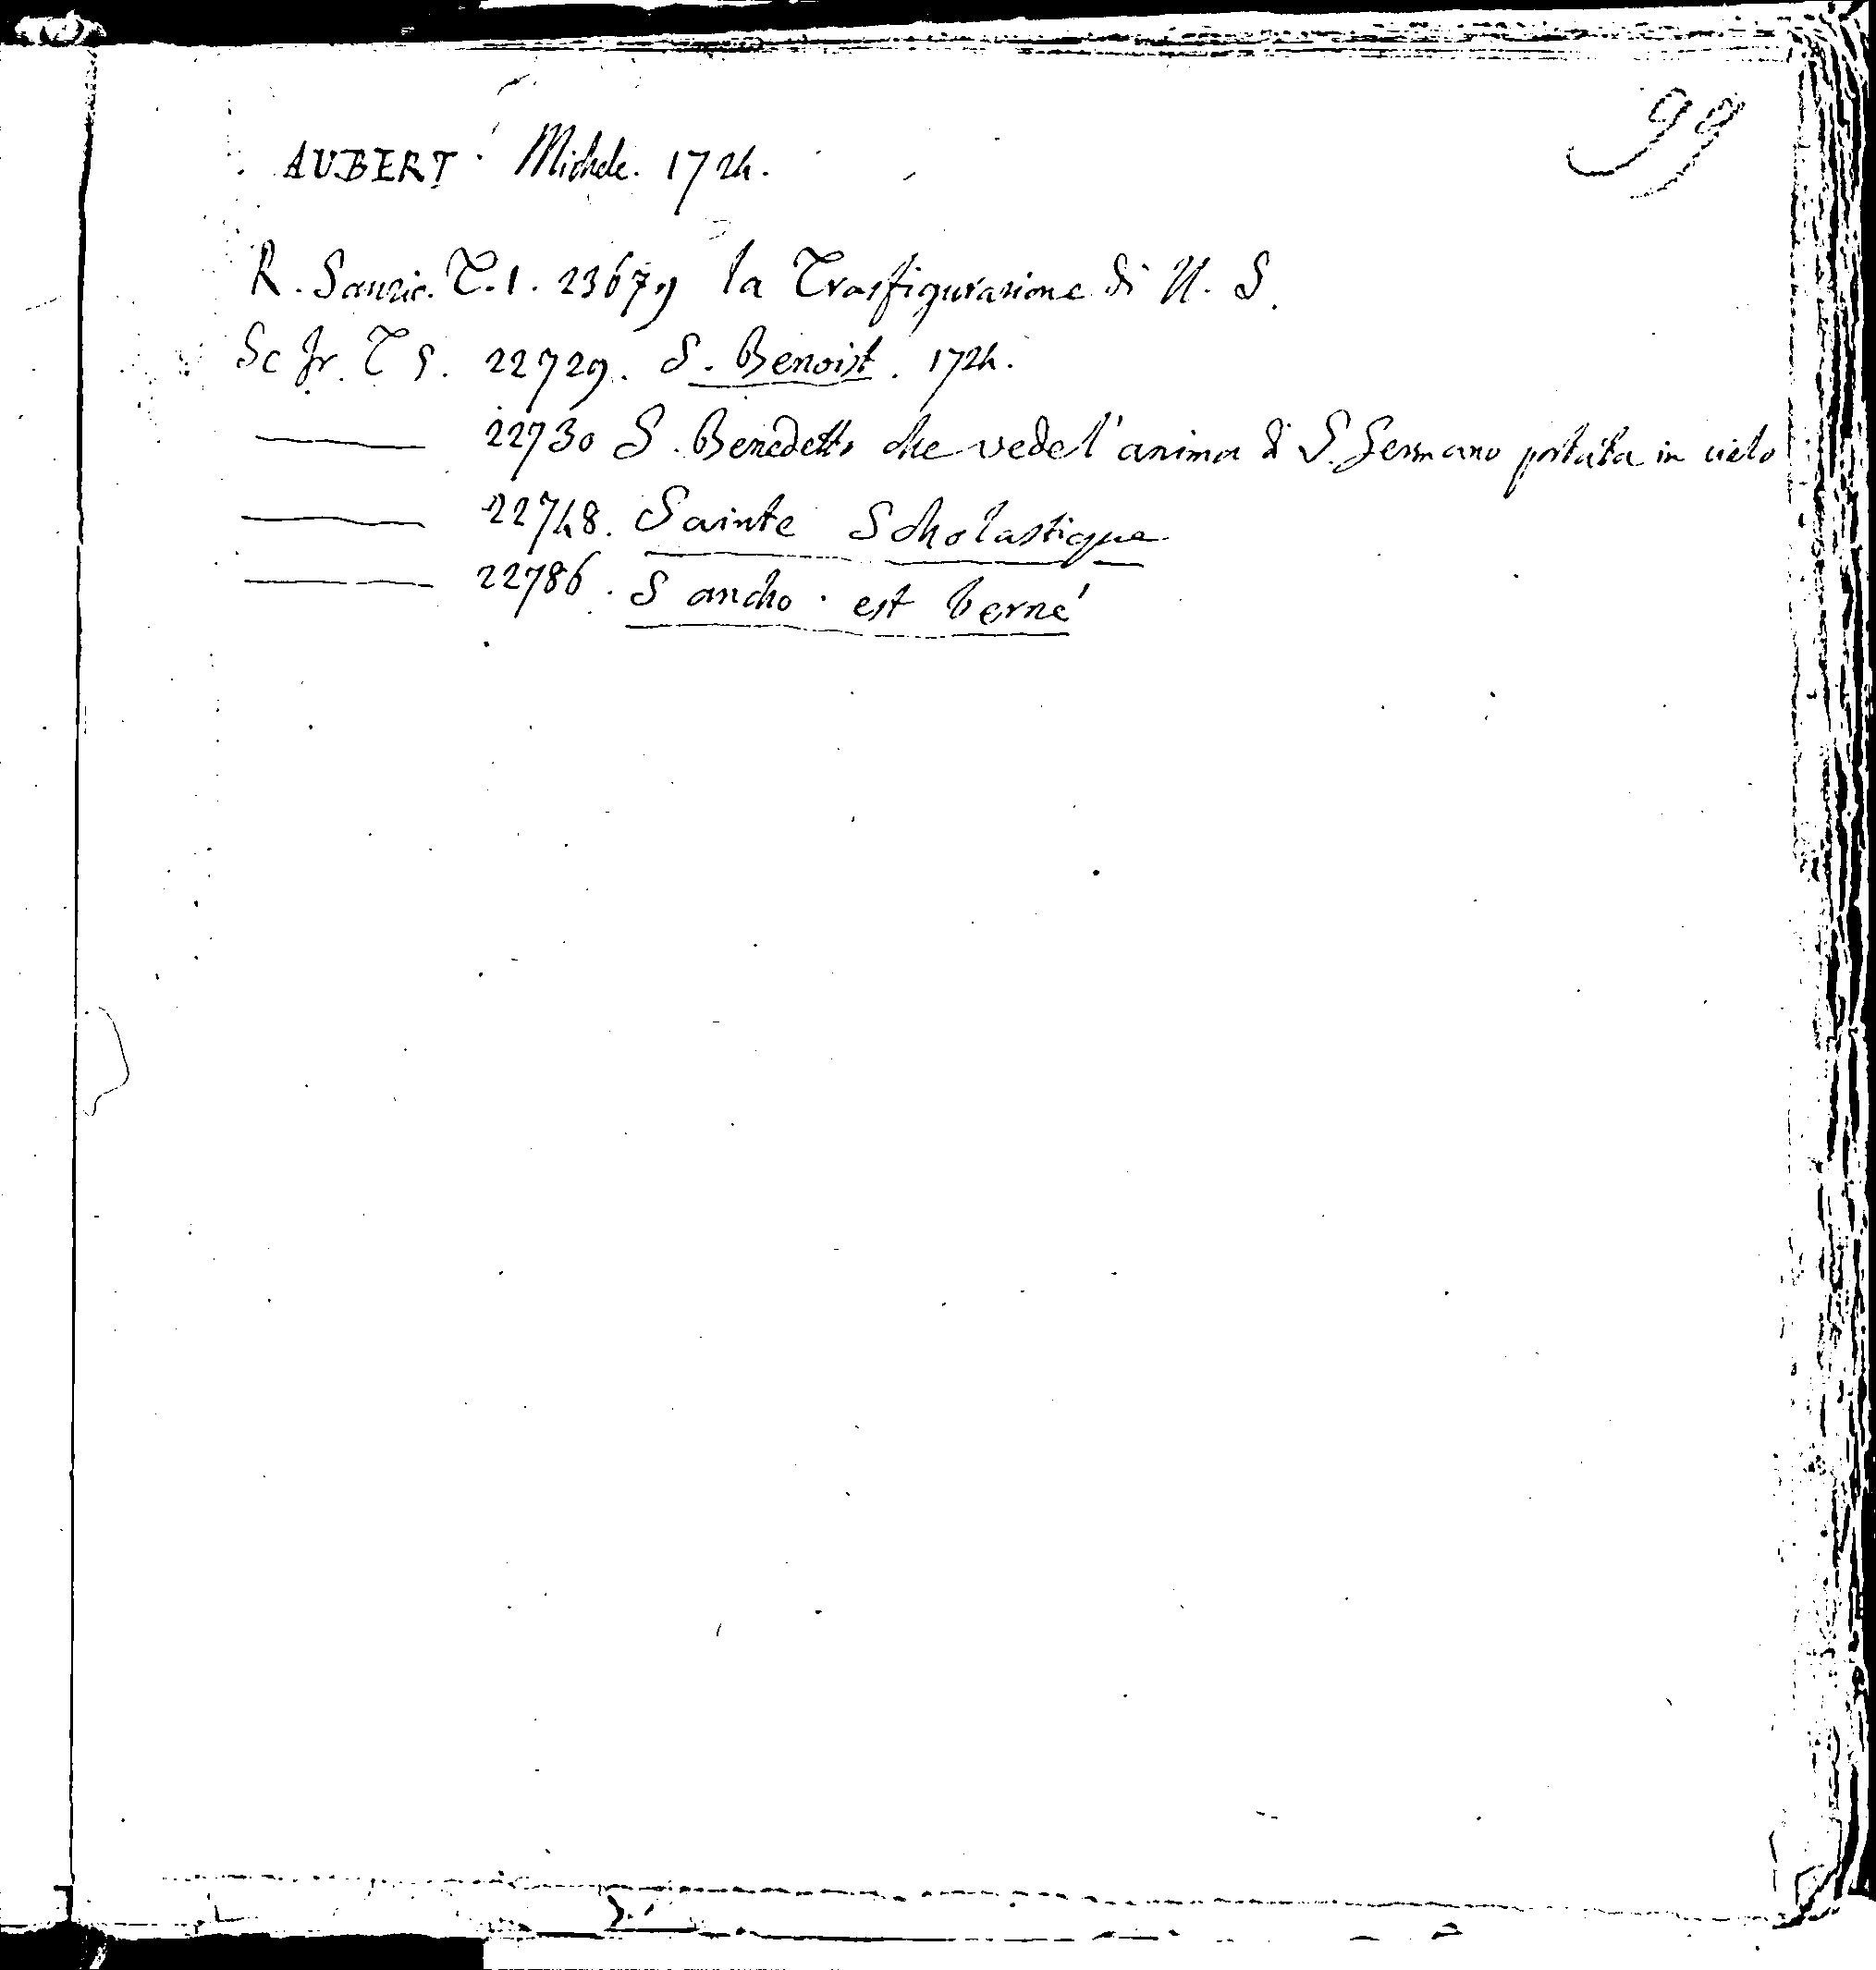 99
AUBERT Michele. 1724.
R. Sanzio. T. 1. 23679 la Trasfigurazione di N. S.
Sc fr. T 5. 22729. S. Benoist. 1724.
22730 S. Benedetto che vede l'anima di S. Germano portata in cielo
22748. Sainte Scholastique
22786. Sancho est berné